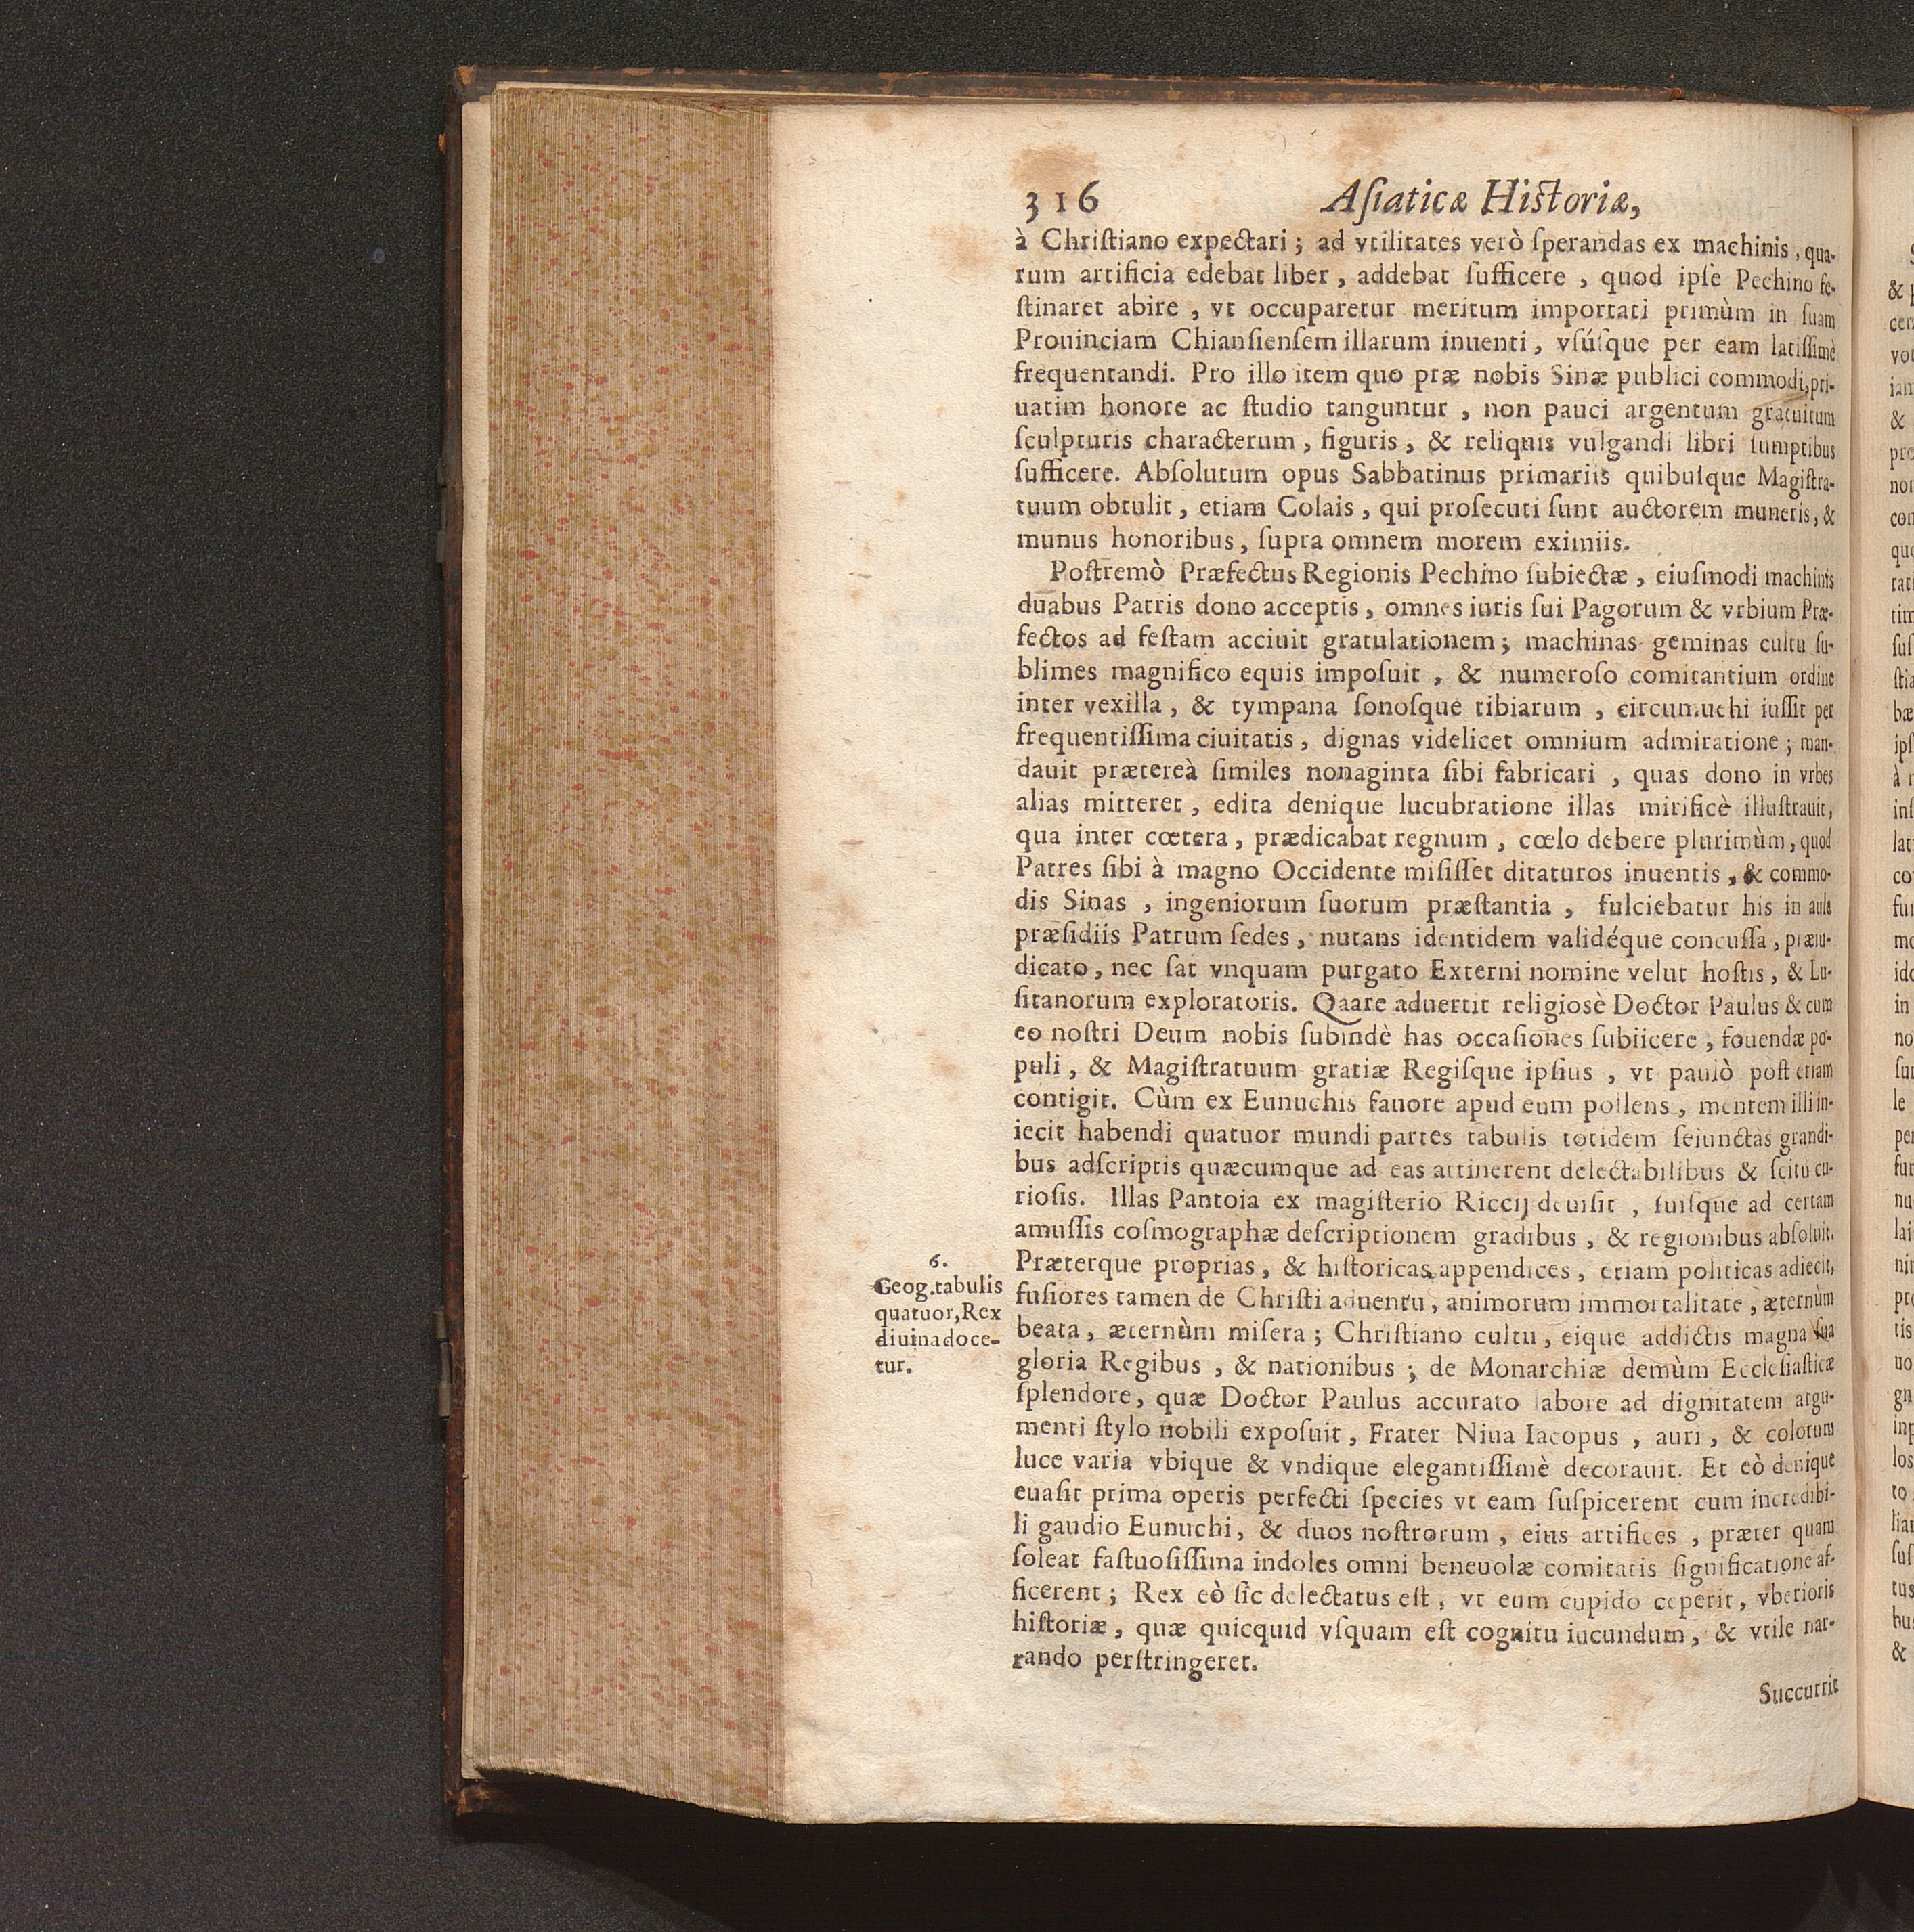 316 Aſiaticæ Hiſtoriæ,
à Chriſtiano expectari; ad vtilitates verò ſperandas ex machinis, qua-
rum artificia edebat liber, addebat ſufficere, quod ipſe Pechino fe-
ſtinaret abire, vt occuparetur meritum importati primùm in ſuam
Prouinciam Chianſienſem illarum inuenti, vſúſque per eam latiſſimè
frequentandi. Pro illo item quo præ nobis Sinæ publici commodi, pri-
uatim honore ac ſtudio tanguntur, non pauci argentum gratuitum
ſculpturis characterum, figuris, & reliquis vulgandi libri ſumptibus
ſufficere. Abſolutum opus Sabbatinus primariis quibuſque Magiſtra-
tuum obtulit, etiam Colais, qui proſecuti ſunt auctorem muneris, &
munus honoribus, ſupra omnem morem eximiis.
Poſtremò Præfectus Regionis Pechino ſubiectæ, eiuſmodi machinis
duabus Patris dono acceptis, omnes iuris ſui Pagorum & vrbium Præ-
fectos ad feſtam acciuit gratulationem; machinas geminas cultu ſu-
blimes magnifico equis impoſuit, & numeroſo comitantium ordine
inter vexilla, & tympana ſonoſque tibiarum, circumuehi iuſſit per
frequentiſſima ciuitatis, dignas videlicet omnium admiratione; man-
dauit prætereà ſimiles nonaginta ſibi fabricari, quas dono in vrbes
alias mitteret, edita denique lucubratione illas mirificè illuſtrauit,
qua inter cœtera, prædicabat regnum, cœlo debere plurimùm, quod
Patres ſibi à magno Occidente miſiſſet ditaturos inuentis, & commo-
dis Sinas, ingeniorum ſuorum præſtantia, fulciebatur his in aula
præſidiis Patrum ſedes, nutans identidem validéque concuſſa, præiu-
dicato, nec ſat vnquam purgato Externi nomine velut hoſtis, & Lu-
ſitanorum exploratoris. Qaare aduertit religioſè Doctor Paulus & cum
eo noſtri Deum nobis ſubindè has occaſiones ſubiicere, fouendæ po-
puli, & Magiſtratuum gratiæ Regiſque ipſius, vt paulò poſt etiam
contigit. Cùm ex Eunuchis fauore apud eum pollens, mentem illi in-
iecit habendi quatuor mundi partes tabulis totidem ſeiunctas grandi-
bus adſcriptis quæcumque ad eas attinerent delectabilibus & ſcitu cu-
rioſis. Illas Pantoia ex magiſterio Riccij deuiſit, ſuiſque ad certam
amuſſis coſmographæ deſcriptionem gradibus, & regionibus abſoluit.
Præterque proprias, & hiſtoricas appendices, etiam politicas adiecit,
fuſiores tamen de Chriſti aduentu, animorum immortalitate, æternùm
beata, æternùm miſera; Chriſtiano cultu, eique addictis magna ſua
gloria Regibus, & nationibus; de Monarchiæ demùm Eccleſiaſticæ
ſplendore, quæ Doctor Paulus accurato labore ad dignitatem argu-
menti ſtylo nobili expoſuit, Frater Niua Iacopus, auri, & colorum
luce varia vbique & vndique elegantiſſimè decorauit. Et eò denique
euaſit prima operis perfecti ſpecies vt eam ſuſpicerent cum incredibi-
li gaudio Eunuchi, & duos noſtrorum, eius artifices, præter quam
ſoleat faſtuoſiſſima indoles omni beneuolæ comitatis ſignificatione af-
ficerent; Rex eò ſic delectatus eſt, vt eum cupido ceperit, vberioris
hiſtoriæ, quæ quicquid vſquam eſt cognitu iucundum, & vtile nar-
rando perſtringeret.
Succurrit
6.
Geog.tabulis
quatuor, Rex
diuina doce-
tur.